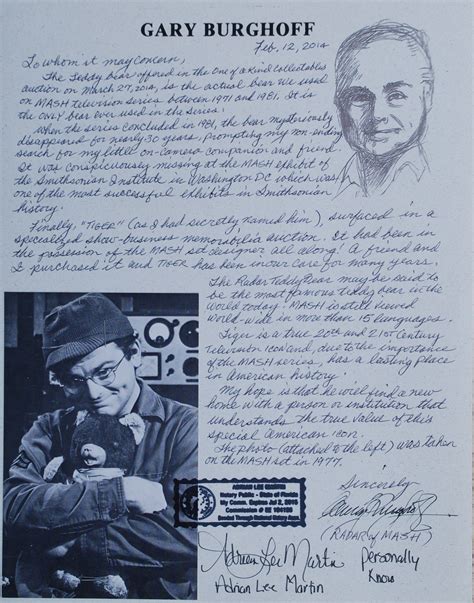 GARY BURGHOFF
Feb. 12, 2014
To whom it may concern,
The Teddy bear offered in the One of a Kind Collectables
auction on March 27, 2014, is the actual Bear we used
on MASH television series between 1971 and 1981. It is
the ONLY bear ever used in the Series.
When the series concluded in 1981, the bear mysteriously
disappeared for nearly 30 years, Prompting my non-ending
search for my little on-camera companion and friend.
It was conspicuously missing at the MASH exhibit of
the Smithsonian Institute in Washington DC which was
one of the most successful exhibits in Smithsonian
history.
Finally, "TIGER" (as I had secretly named him), surfaced in a
specialized show-business memorabilia auction. It had been in
the possession of the MASH set designer all along! A friend and
I purchased it and TIGER has been in our care for many years.
The Radar Teddy Bear may be said to
be the most famous teddy bear in the
world today! MASH is still viewed
world-wide in more than 15 languages.
Tiger is a true 20th and 21st Century
Television Icon and, due to the importance
of the MASH series, has a lasting place
in American history.
My hope is that he will find a new
home with a person or institution that
understands the true value of this
special American icon.
The photo (attached to the left) was taken
on the MASH set in 1977.
Sincerely,
(RADAR of MASH)
ADRIAN LEE MARTIN
Notary Public - State of Florida
My Comm. Expires Jul 2, 2015
Commission # EE
Bonded Through National Notary Assn.
Adrian Lee Martin
Personally
Know
Adrian Lee Martin